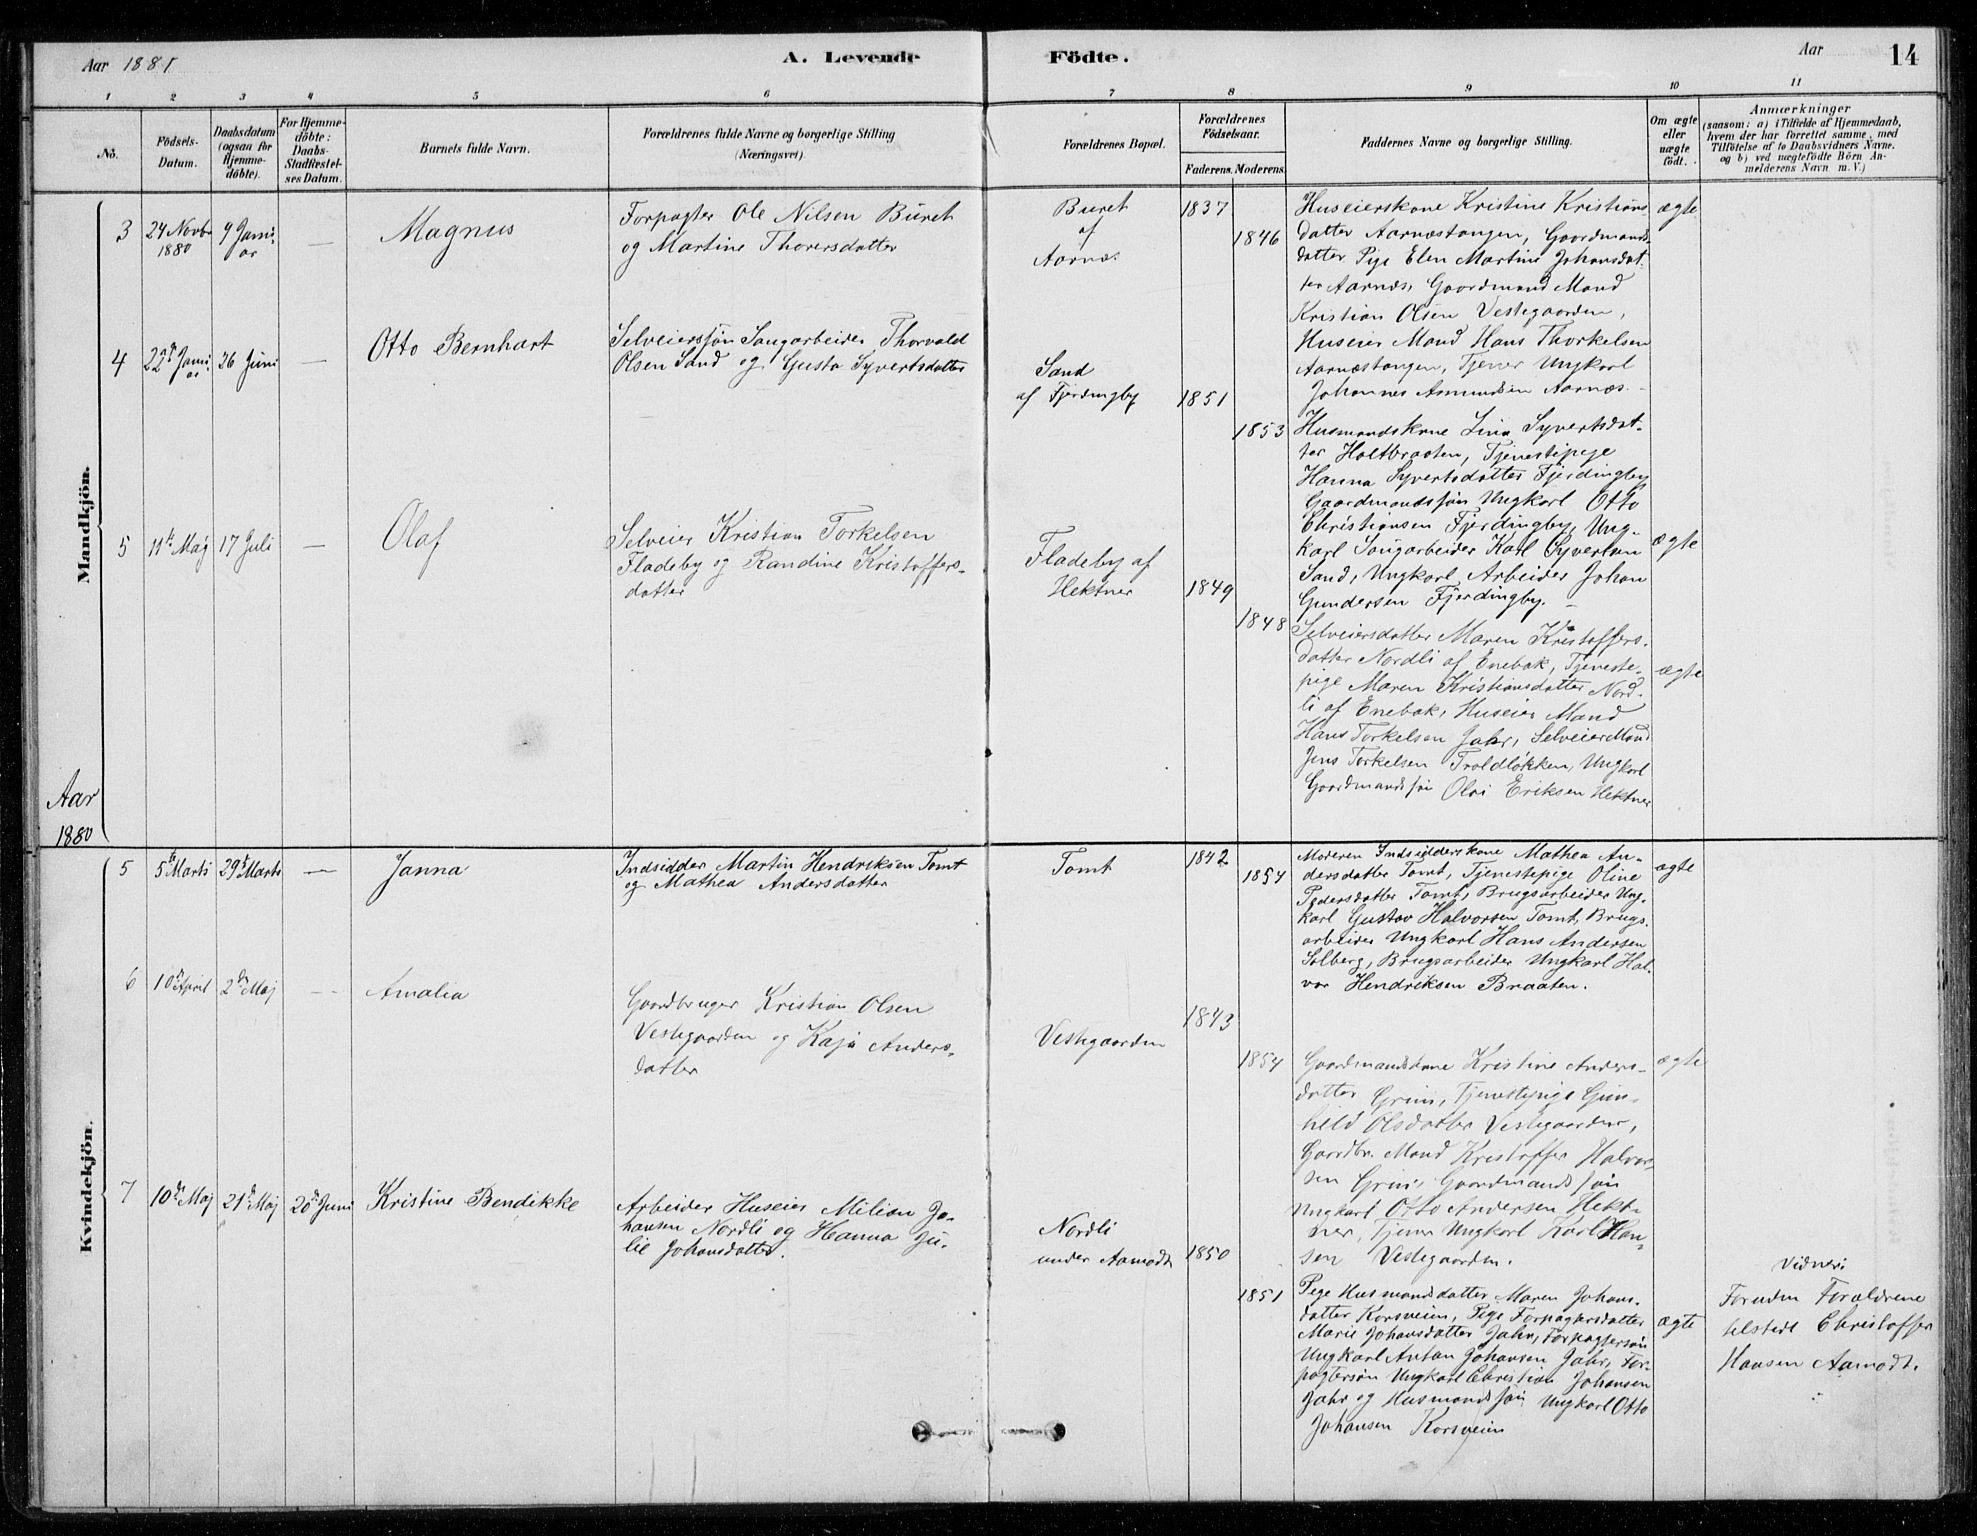 Aar 1881
A. Levende
Födte.
Aar
14
1 2 3 4 5 6 7 8 9 10 11
No.
Födsels-
Datum.
Daabsdatum
(ogsaa for
Hjemme-
döbte).
For Hjemme-
döbte:
Daabs-
Stadfæstel-
ses Datum.
Barnets fulde Navn.
Forældrenes fulde Navne og borgerlige Stilling
(Næringsvei).
Forældrenes Bopæl.
Forældrenes
Födselsaar.
Faderens. Moderens.
Faddernes Navne og borgerlige Stilling.
Om ægte
eller
uægte
födt.
Anmærkninger
(saasom: a) i Tilfælde af Hjemmedaab,
hvem der har forrettet samme, med
Tilföielse af to Daabsvidners Navne.
og b) ved uægtefödte Börn An-
melderens Navn m. V.)
Mandkjön.
3
24 Novbr
1880
9 Janu-
ar
—
Magnus
Forpagter Ole Nilsen Buret
og Martine Thorersdatter
Buret
af
Aarnæs
1837
1846
Huseierskone Kristine Kristians
datter Aarnæstangen, Gaardmands-
datter Pige Elen Martine Johansdat-
ter Aarnæs, Gaardmand Mand
Kristian Olsen Vestegaarden,
Huseier Mand Hans Thorkelsen
Aarnæstangen, Tjener Ungkarl
Johannes Asmundsen Aarnæs.-
ægte
4
22de Janu-
ar
26 Juni
—
Otto Bernhart
Selveiersøn Saugarbeider Thorvald
Olsen Sand og Gusta Syvertsdatter
Sand
af Fjerdingby
1851
1853
Husmandskone Lina Syvertsdat-
ter Holtbraaten, Tjenestepige
Hanna Syvertsdatter Fjerdingby
Gaardmandssøn Ungkarl Otto
Christiansen Fjerdingby, Ung-
karl Saugarbeider Karl Syvertsen
Sand, Ungkarl Arbeider Johan
Gundersen Fjerdingby. -
ægte
5
11te Maj
17 Juli
—
Olaf
Selveier Kristian Torkelsen
Fladeby og Randine Kristoffers-
datter
Fladeby af
Hektner
1849
1848
Selveiersdatter Maren Kristoffers-
datter Nordli af Enebak, Tjeneste-
pige Maren Kristiansdatter Nord-
li af Enebak, Huseier Mand
Hans Torkelsen Jahr, Selveier Mand
Jens Torkelsen Troldløkken, Ungkarl
Gaardmandssøn Olai Eriksen Hektner
ægte
Aar
1880
Kvindekjön.
5
5te Marts
29de Marts
—
Janna
Indsidder Martin Hendriksen Tomt
og Mathea Andersdatter
Tomt
1842
1854
Moderen Indsidderskone Mathea An-
dersdatter Tomt, Tjenestepige Oline
Pedersdatter Tomt, Brugsarbeider Ung-
karl Gustav Halvorsen Tomt, Brugs-
arbeider Ungkarl Hans Andersen
Solberg, Brugsarbeider Ungkarl Hal-
vor Hendriksen Braaten.
ægte
6
10de April
2den Maj
—
Amalia
Gaardbruger Kristian Olsen
Vestegaarden og Kaja Anders-
datter
Vestegaarden
1843
1854
Gaardmandskone Kristine Anders-
datter Grini, Tjenestepige Gun-
hild Olsdatter Vestegaarden,
Gaardbr. Mand Kristoffer Halvor-
sen Grini, Gaardmandssøn
Ungkarl Otto Andersen Hekt-
ner, Tjener Ungkarl Karl Han-
sen Vestegaarden.
ægte
7
10de Maj
21de Maj
20de Juni
Kristine Bendikke
Arbeider Huseier Milian Jo-
hansen Nordli og Hanna Ju-
lie Johansdatter.
Nordli
under Aamodt
1850
1851
Pige Husmandsdatter Maren Johans-
datter Korsveien, Pige Forpagtersdatter
Marie Johansdatter Jahr, Forpagtersøn
Ungkarl Anton Johansen Jahr, For-
pagtersøn Ungkarl Christian Johansen
Jahr og Husmandssøn Ungkarl Otto
Johansen Korsveien
ægte
Vidner:
Foruden Forældrene
tilstede Christoffer
Hansen Aamodt.